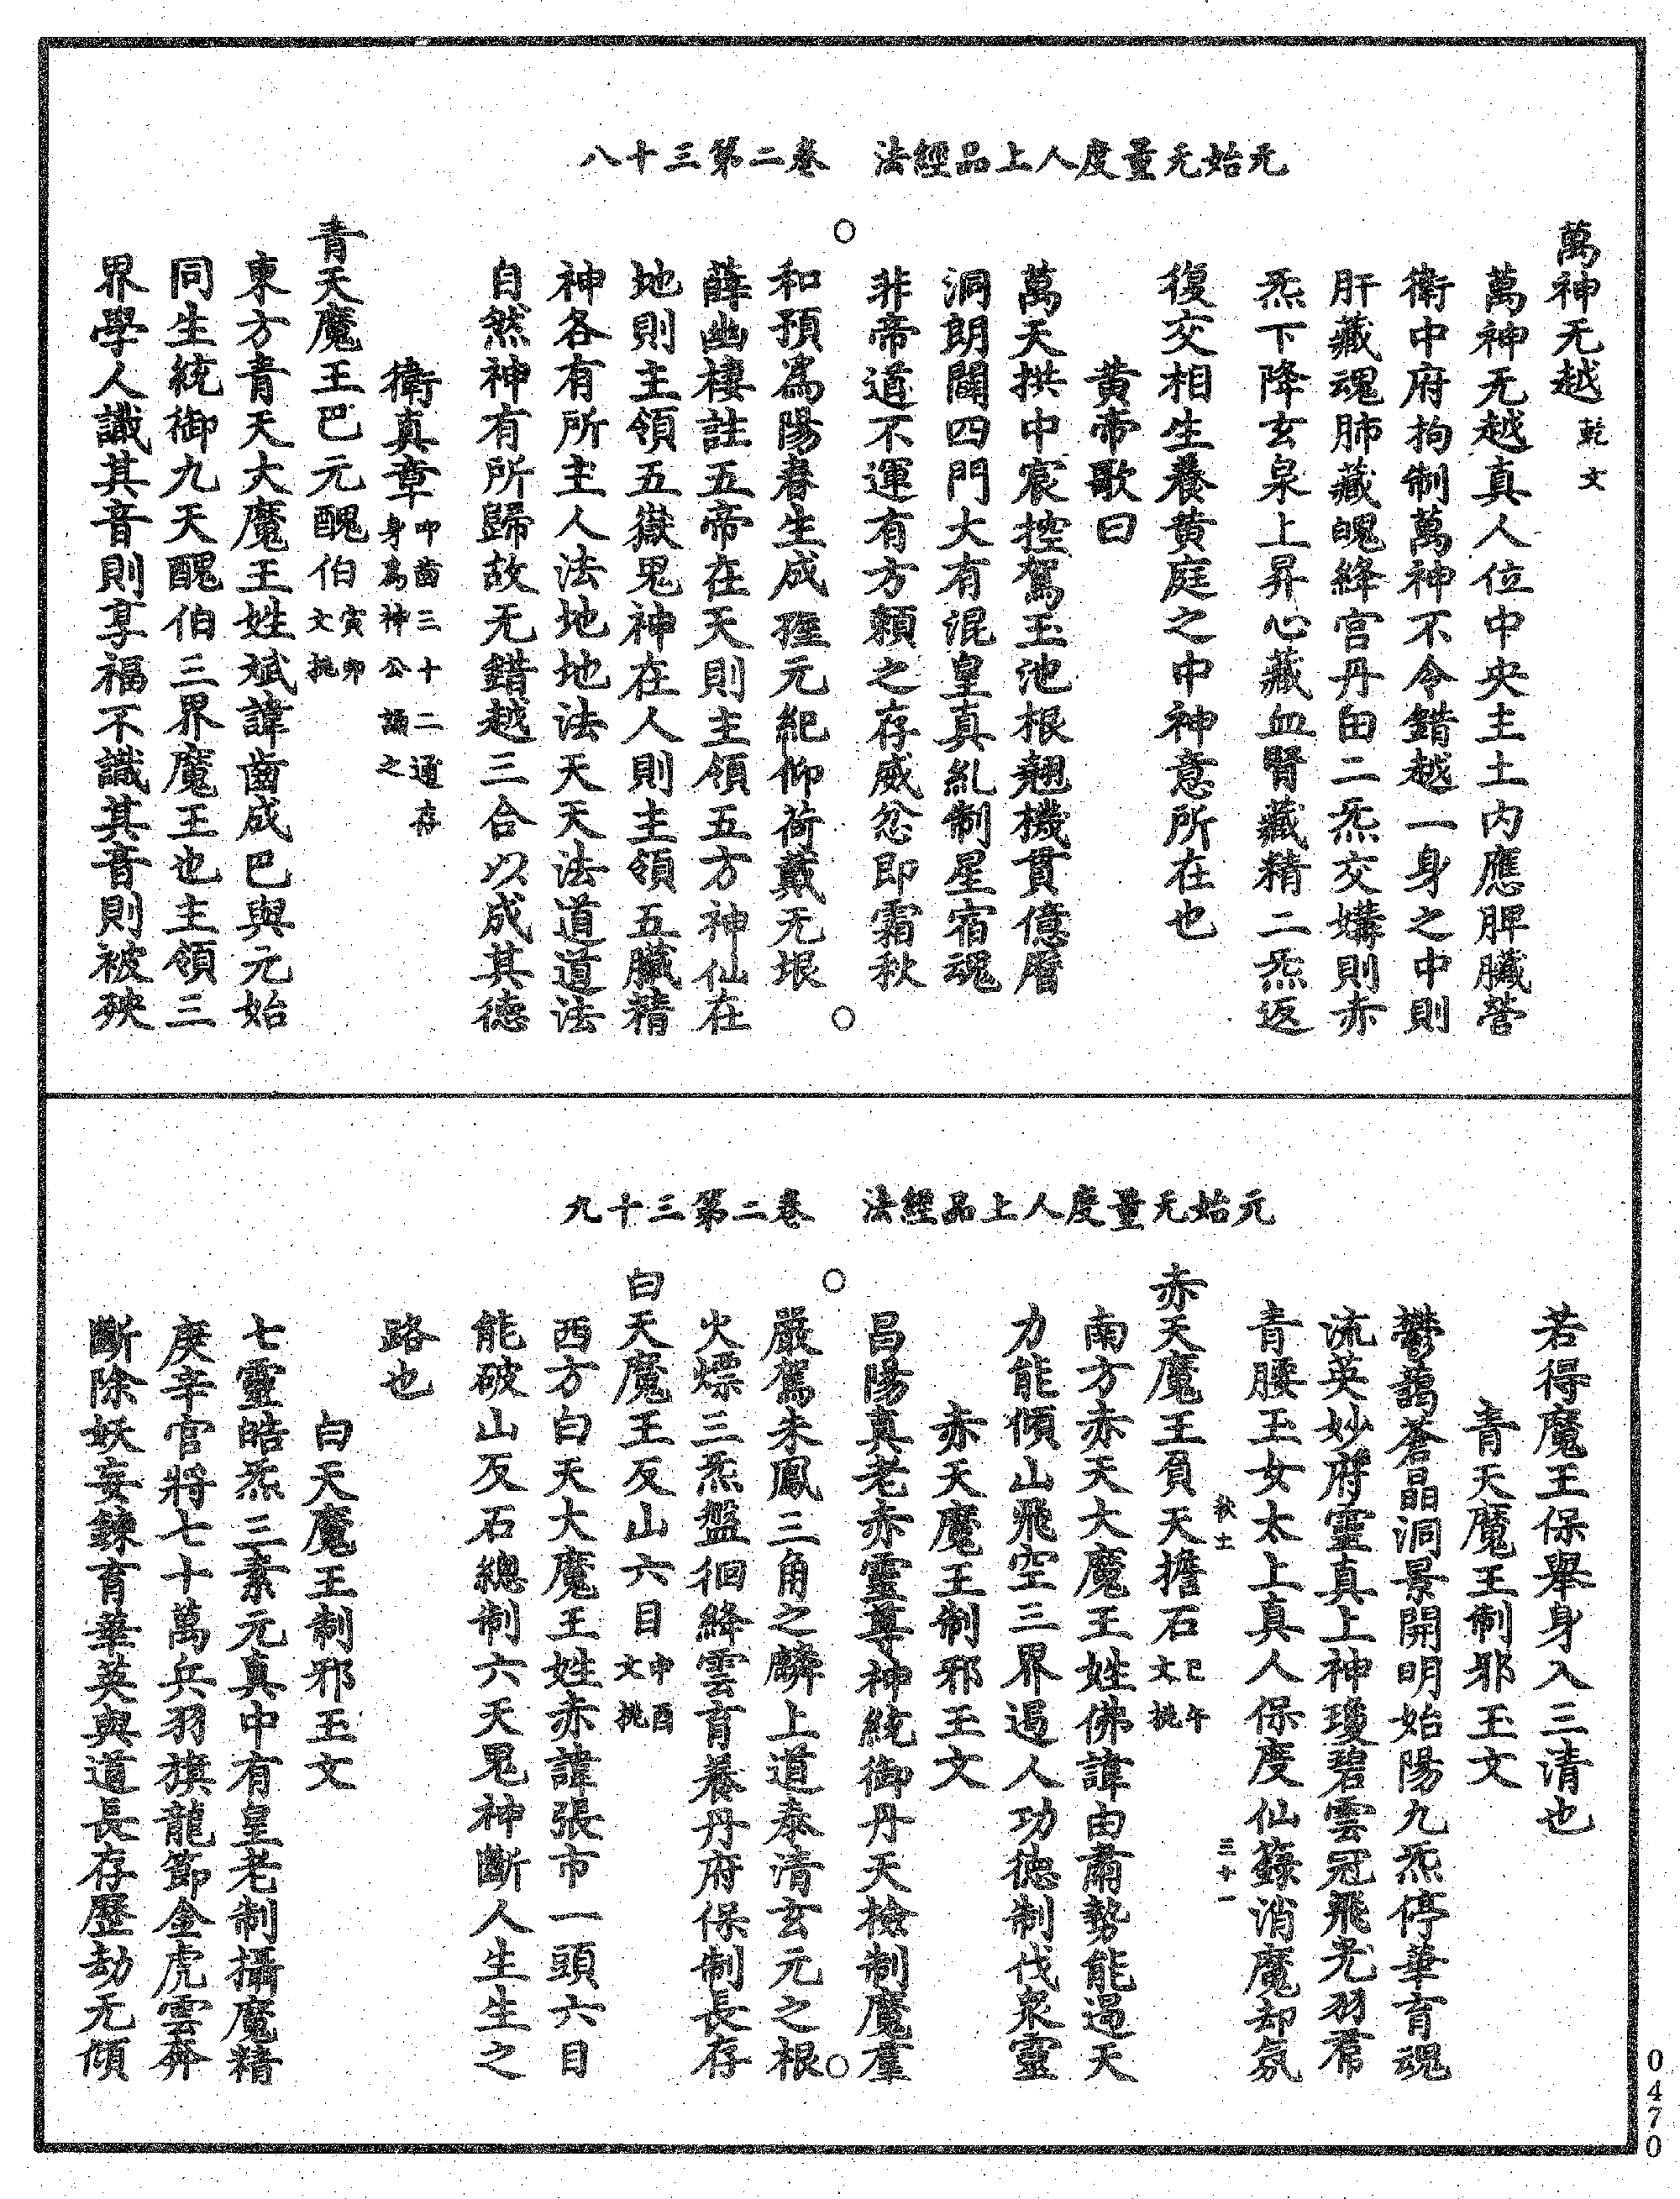 元始无量度人上品經法　卷二第三十八
萬神无越乾文
萬神无越真人位中央主土内應脾臟營
衛中府拘制萬神不令錯越一身之中則
肝藏魂肺藏魄絳宮丹田二炁交媾則赤
炁下降玄泉上昇心藏血腎藏精二炁返
復交相生養黄庭之中神意所在也
黄帝歌曰
萬天拱中宸控駕玉池根翹機貫億層
洞朗闢四門大有混皇真糺制星宿魂
非帝道不運有方賴之存威忿即霜秋
和預為陽春生成孲元紀仰荷戴无垠
薛幽棲註五帝在天則主領五方神仙在
地則主領五嶽鬼神在人則主領五臟精
神各有所主人法地地法天天法道道法
自然神有所歸故无錯越三合以成其德
衛真章叩齒三十二通存身為神公誦之
青天魔王巴元醜伯寅卯文挑
東方青天大魔王姓斌諱齒成巴與元始
同生統御九天醜伯三界魔王也主領三
界學人識其音則享福不識其音則被殃
元始无量度人上品經法　卷二第三十九
若得魔王保舉身入三清也
青天魔王制邪玉文
鬱藹蒼晶洞景開明始陽九炁停華育魂
流英妙府靈真上神瓊碧雲冠飛光羽帬
青腰玉女太上真人保度仙籙消魔却氛
秋士　三十一
赤天魔王負天擔石巳午文挑
南方赤天大魔王姓佛諱由肅勢能遏天
力能傾山飛空三界過人功德制伐泉靈
赤天魔王制邪王文
昌陽真老赤靈尊神統御丹天檢制魔羣
嚴駕朱鳳三角之麟上道泰清玄元之根
火熛三炁盤徊絳雲育養丹府保制長存
白天魔王反山六目申酉文挑
西方白天大魔王姓赤諱張市一頭六目
能破山反石總制六天鬼神斷人生生之
路也
白天魔王制邪玉文
七靈皓炁三素元真中有皇老制攝魔精
庚辛官將七十萬兵羽旗龍節金虎雲奔
斷除妖妄鍊育華英與道長存歷劫无傾
0470